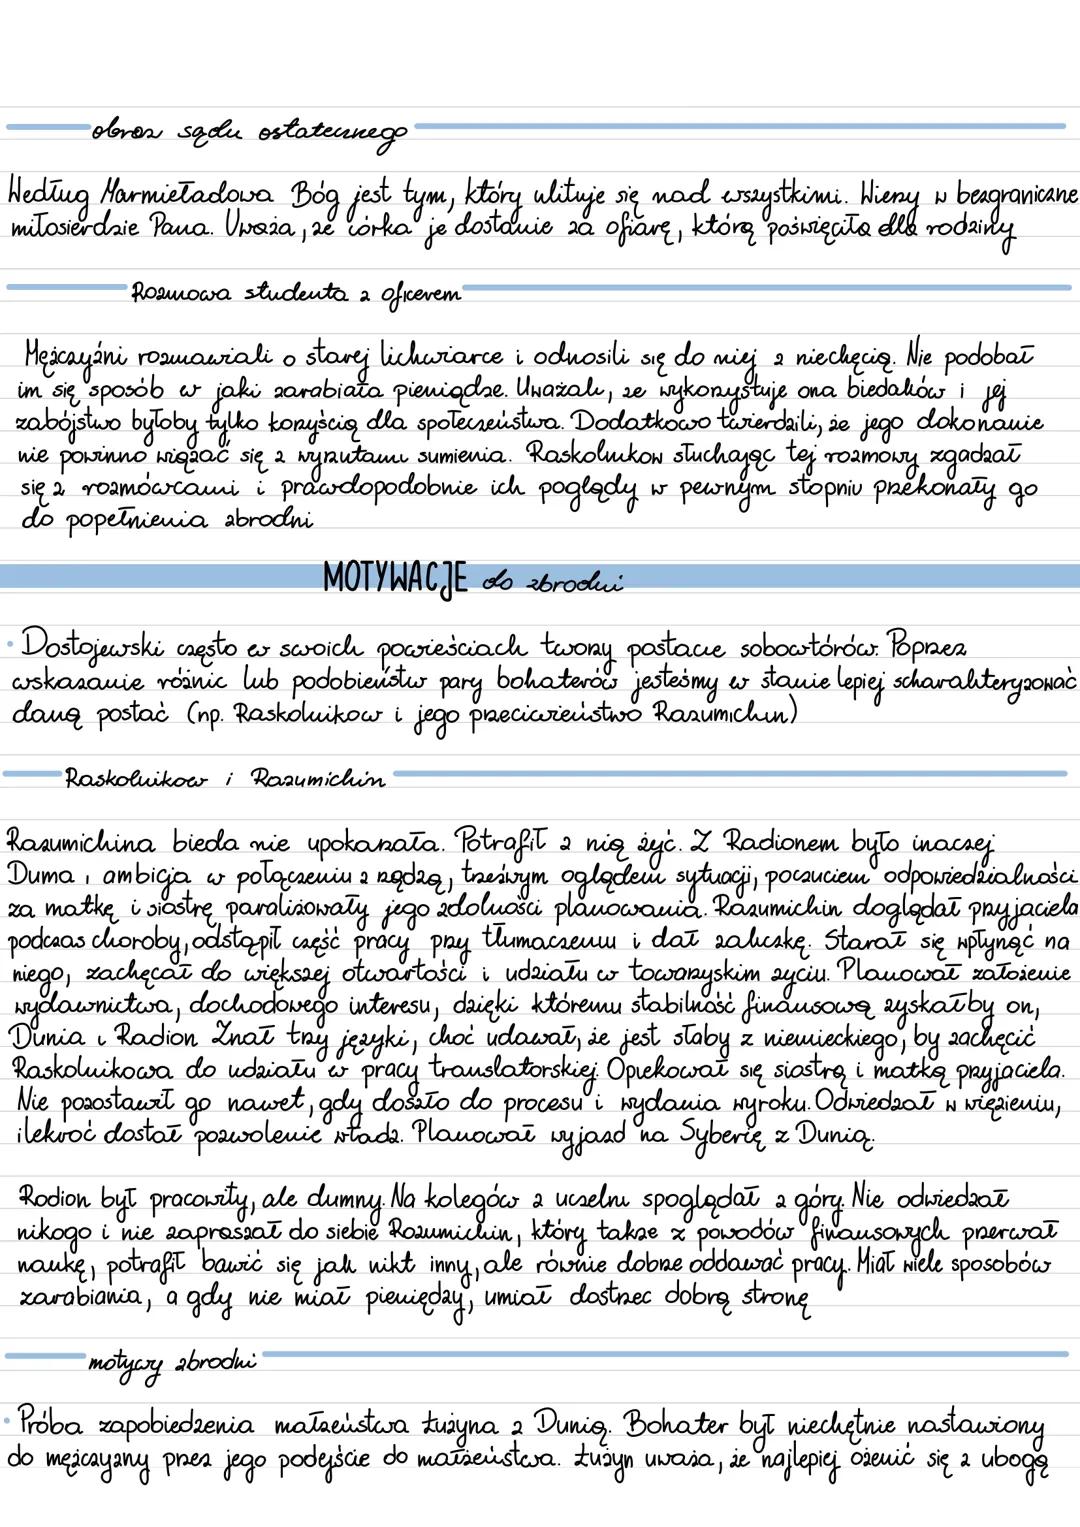 obraz sądu ostatecznego
Według Marmieładowa Bóg jest tym, który ulituje się nad wszystkimi. Wierzy w bezgraniczne
miłosierdzie Pana. Uważa, że córka je dostanie za ofiarę, którą poświęciła dla rodziny
Rozmowa studenta z oficerem
Mężczyźni rozmawiali o starej lichwiarce i odnosili się do niej z niechęcią. Nie podobał
im się sposób w jaki zarabiała pieniądze. Uważali, że wykorzystuje ona biedaków i jej
zabójstwo byłoby tylko korzyścią dla społeczeństwa. Dodatkowo twierdzili, że jego dokonanie
nie powinno wiązać się z wyrzutami sumienia. Raskolnikow słuchając tej rozmowy zgadzał
się z rozmówcami i prawdopodobnie ich poglądy w pewnym stopniu przekonały go
do popełnienia zbrodni
MOTYWACJE do zbrodni
• Dostojewski często w swoich powieściach tworzy postacie sobowtórów. Poprzez
wskazanie różnic lub podobieństw pary bohaterów jesteśmy w stanie lepiej scharakteryzować
daną postać (np. Raskolnikow i jego przeciwieństwo Razumichin)
Raskolnikow i Razumichin
Razumichina bieda nie upokarzała. Potrafił z nią żyć. Z Radionem było inaczej
Duma i ambicja w połączeniu z nędzą, trzeźwym oglądem sytuacji, poczuciem odpowiedzialności
za matkę i siostrę paraliżowały jego zdolności planowania. Razumichin doglądał przyjaciela
podczas choroby, odstąpił część pracy przy tłumaczeniu i dał zaliczkę. Starał się wpłynąć na
niego, zachęcał do większej otwartości i udziału w towarzyskim życiu. Planował założenie
wydawnictwa, dochodowego interesu, dzięki któremu stabilność finansową zyskałby on,
Dunia i Radion Znał trzy języki, choć udawał, że jest słaby z niemieckiego, by zachęcić
Raskolnikowa do udziału w pracy translatorskiej. Opiekował się siostrą i matką przyjaciela.
Nie pozostawił go nawet, gdy doszło do procesu i wydania wyroku. Odwiedzał w więzieniu,
ilekroć dostał pozwolenie władz. Planował wyjazd na Syberię z Dunią.
Rodion był pracowity, ale dumny. Na kolegów z uczelni spoglądał z góry. Nie odwiedzał
nikogo i nie zapraszał do siebie Rozumichin, który także z powodów finansowych przerwał
naukę, potrafił bawić się jak nikt inny, ale równie dobrze oddawać pracy. Miał wiele sposobów
zarabiania, a gdy nie miał pieniędzy, umiał dostrzec dobrą stronę
motywy zbrodni
• Próba zapobiedzenia małżeństwa Łużyna z Dunią. Bohater był niechętnie nastawiony
do mężczyzny przez jego podejście do małżeństwa. Łużyn uważa, że najlepiej ożenić się z ubogą